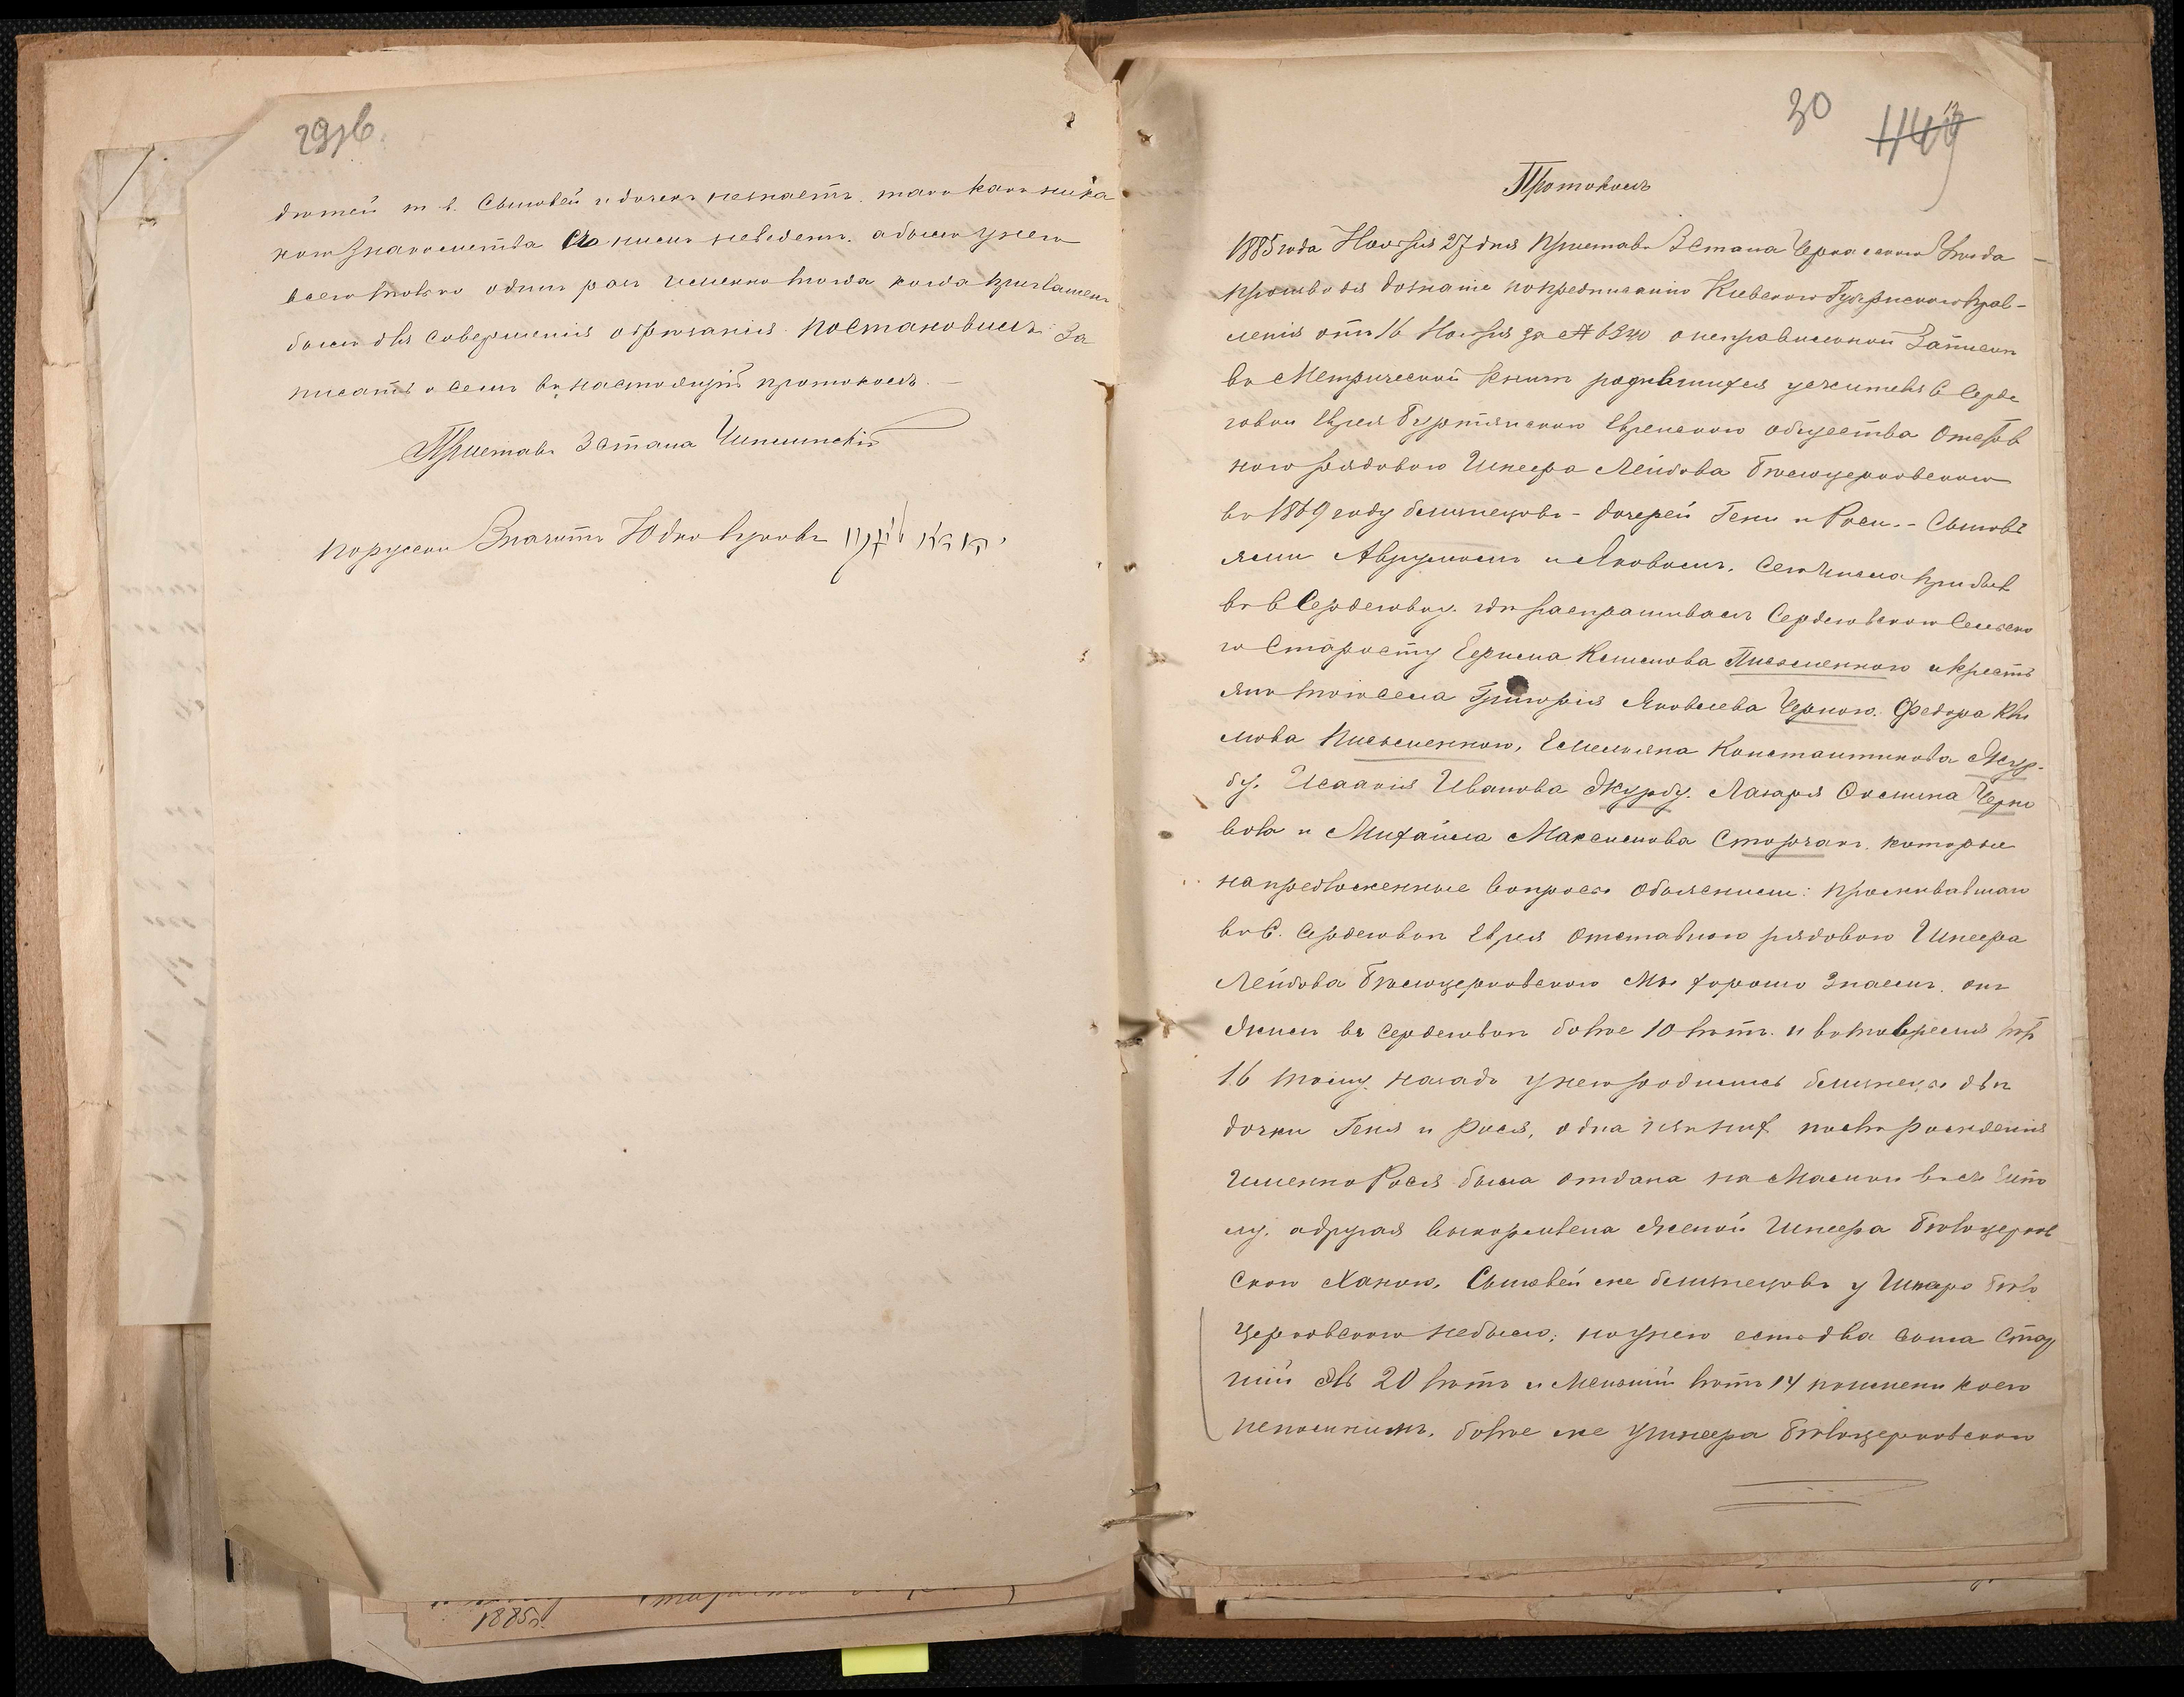 29об.
дѣтей т.е. сыновей и дочекъ незнаетъ. такъ какъ ника
кого знакомства съ нимъ неведетъ. а былъ унего
всего только одинъ разъ именно тогда когда приглашенъ
былъ для совершенія обрѣзанія. Постановилъ: За
писать о семъ въ настоящій протоколъ. —
Приставъ 3 стана
по русски значитъ Юдко
30
Протоколъ
1885 года Ноября 27 дня Приставъ 3 стана Черкасскаго Уѣзда
производя дознаніе по предписанію Кіевскаго Губернскаго Прав-
ленія отъ 16 Ноября за № о неправильной записи
въ Метрической книгѣ родившихся у жителя с Серде
говки Еврея Еврейскаго общества Отстав
наго рядоваго Шнеера Лейбова Бѣлоцерковскаго
въ 1869 году близнецовъ - дочерей Гени и Роси. - Сыновь
ями Аврумомъ и Яковомъ. Сего числа прибывъ
въ с Сердеговку. гдѣ распрашивалъ Сердеговскаго Сельска
го Старосту Климова Письменнаго и кресть
янъ того села Григорія Яковлева Чернаго. Федора Кли
мова Письменнаго, Емельяна Константинова Жур-
бу. Исаакія Иванова Журбу. Лазаря Черно
вола и Михайла Максимова Сторчакъ. которые
на предложенные вопросы объяснили: проживавшаго
въ с. Сердеговкѣ Еврея отставнаго рядоваго Шнеера
Лейбова Бѣлоцерковскаго мы хорошо знаемъ. онъ
жилъ въ Сердеговкѣ болѣе 10 лѣтъ. и въ то время лѣтъ
16 тому назадъ у него родились близнецы двѣ
дочки Геня и Рося, одна изъ нихъ послѣ рожденія
именно Рося была отдана на мамки въ с.
а другая выкормлена женой Шнеера Бѣлоцерков
скаго Ханою, Сыновей же близнецовъ у Шнеера Бѣло
церковскаго небыло; но у него есть два сына стар
шій лѣтъ 20 лѣтъ и меньшій лѣтъ 14 по имени коего
непомнимъ. болѣе же у Шнеера Бѣлоцерковскаго
1885